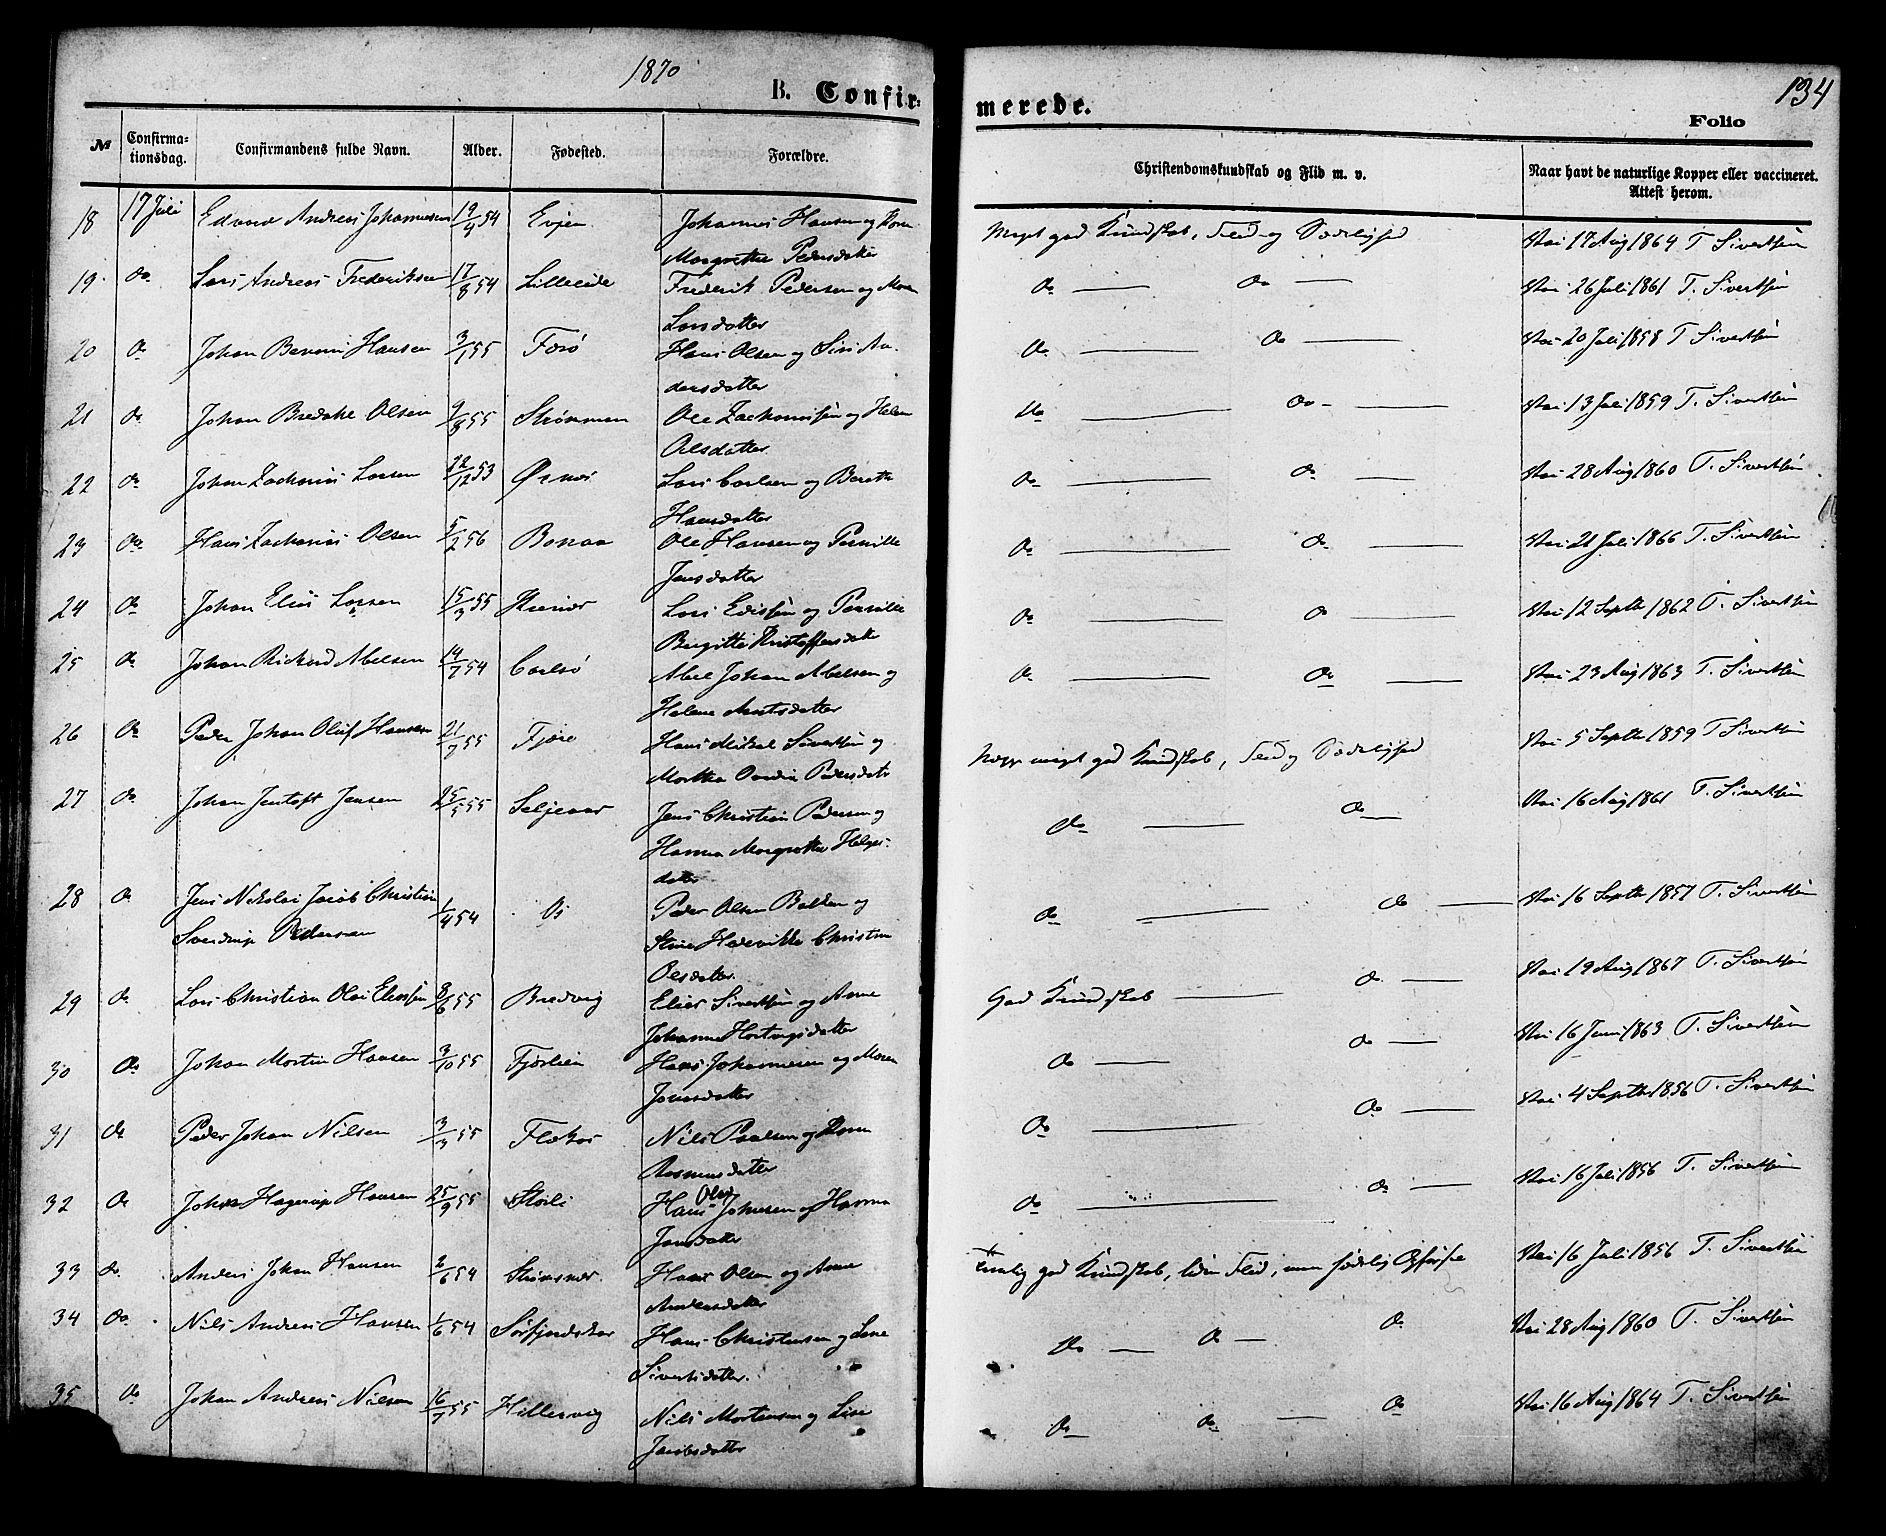 1870
B. Confirmerede.
134
Folio
№ Confirmationsdag. Confirmandens fulde Navn. Alder. Fødested. Forældre. Christendomskundskab og Flid m. v. Naar havt de naturlige Kopper eller vaccineret. Attest herom.
18 17 Juli Edvard Andreas Johannesen 19/4 54 Evjen Johannes Hansen og
Margrethe Pedersdatter Meget god Kundskab, Flid og Sædelighed Vac: 17 Aug 1864 T. Sivertsen
19 do Lars Andreas Frederiksen 17/8 54 Lilleeide Frederik Pedersen og Maren
Larsdatter do do Vac: 26 Juli 1861 T. Sivertsen
20 do Johan Hansen 3/1 55 Forø Hans Olsen og Siri An-
dersdatter do do Vac: 20 Juli 1858 T. Sivertsen
21 do Johan Bredahl Olsen 9/8 55 Strømmen Ole Zachariasen og Helen
Olsdatter do do Vac: 13 Juli 1859 T. Sivertsen
22 do Johan Zacharias Larsen 22/12 53 Ørnes Lars Carlsen og Berethe
Hansdatter do do Vac: 28 Aug 1860 T. Sivertsen
23 do Hans Zacharias Olsen 5/2 56 Bonaa Ole Hansen og Pernille
Jensdatter do do Vac: 21 Juli 1866 T. Sivertsen
24 do Johan Elias Larsen 15/3 55 Lars Edissen og Pernille
Birgitte Kristoffersdatter do do Vac: 12 Septbr 1862 T. Sivertsen
25 do Johan Rickard Abelsen 14/7 54 Carlsø Abel Johan Abelsen og
Helene Arntsdatter do do Vac: 23 Aug 1863 T. Sivertsen
26 do Peder Johan Oluf Hansen 21/7 55 Fjære Hans Mikal Sivertsen og
Martha Pedersdatr Næppe meget god Kundskab, Flid og Sædelighed Vac: 5 Septbr 1859 T. Sivertsen
27 do Johan Jentoft Jensen 25/5 55 Seljeaas Jens Christian Pedersen og
Hanna Margrethe Helges-
datter do do Vac: 16 Aug 1861 T. Sivertsen
28 do Jens Nikolai Jacob Christian
Sverdrup Pedersen 1/4 54 Os Peder Olsen Bakken og
Stine Hedevikke Christine
Olsdatter do do Vac: 16 Septbr 1857 T. Sivertsen
29 do Lars Christian Olai Eliassen 8/6 55 Bredvig Elias Sivertsen og Anne
Johanna Hartvigsdatter God Kundskab do Vac: 19 Aug 1867 T. Sivertsen
30 do Johan Martin Hansen 3/10 55 Fjørlien Hans Johannesen og Maren
Jonasdatter do do Vac: 16 Juni 1863 T. Sivertsen
31 do Peder Johan Nilsen 3/3 55 Nils Paalsen og
Rasmusdatter do do Vac: 4 Septbr 1856 T. Sivertsen
32 do Johan Hagerup Hansen 25/9 55 Storli Hans Olai Johnsen og Hanna
Jonsdatter do do Vac: 16 Juli 1856 T. Sivertsen
33 do Anders Johan Hansen 2/6 54 Strømsnes Hans Olsen og Anne
Andersdatter Temlig god Kundskab, liden Flid, men sædelig Opførsel Vac: 16 Juli 1856 T. Sivertsen
34 do Nils Andreas Hansen 1/6 54 Sørfjordskar Hans Christensen og Lene
Sivertsdatter. do do do Vac: 28 Aug 1860 T. Sivertsen
35 do Johan Andreas Nilsen 16/7 55 Hillesvig Nils Mortensen og Lise
Jacobsdatter do do do Vac: 16 Aug 1864 T. Sivertsen